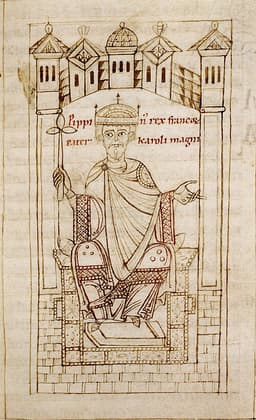 Pippi n' rex francoꝝ
pater karoli magni